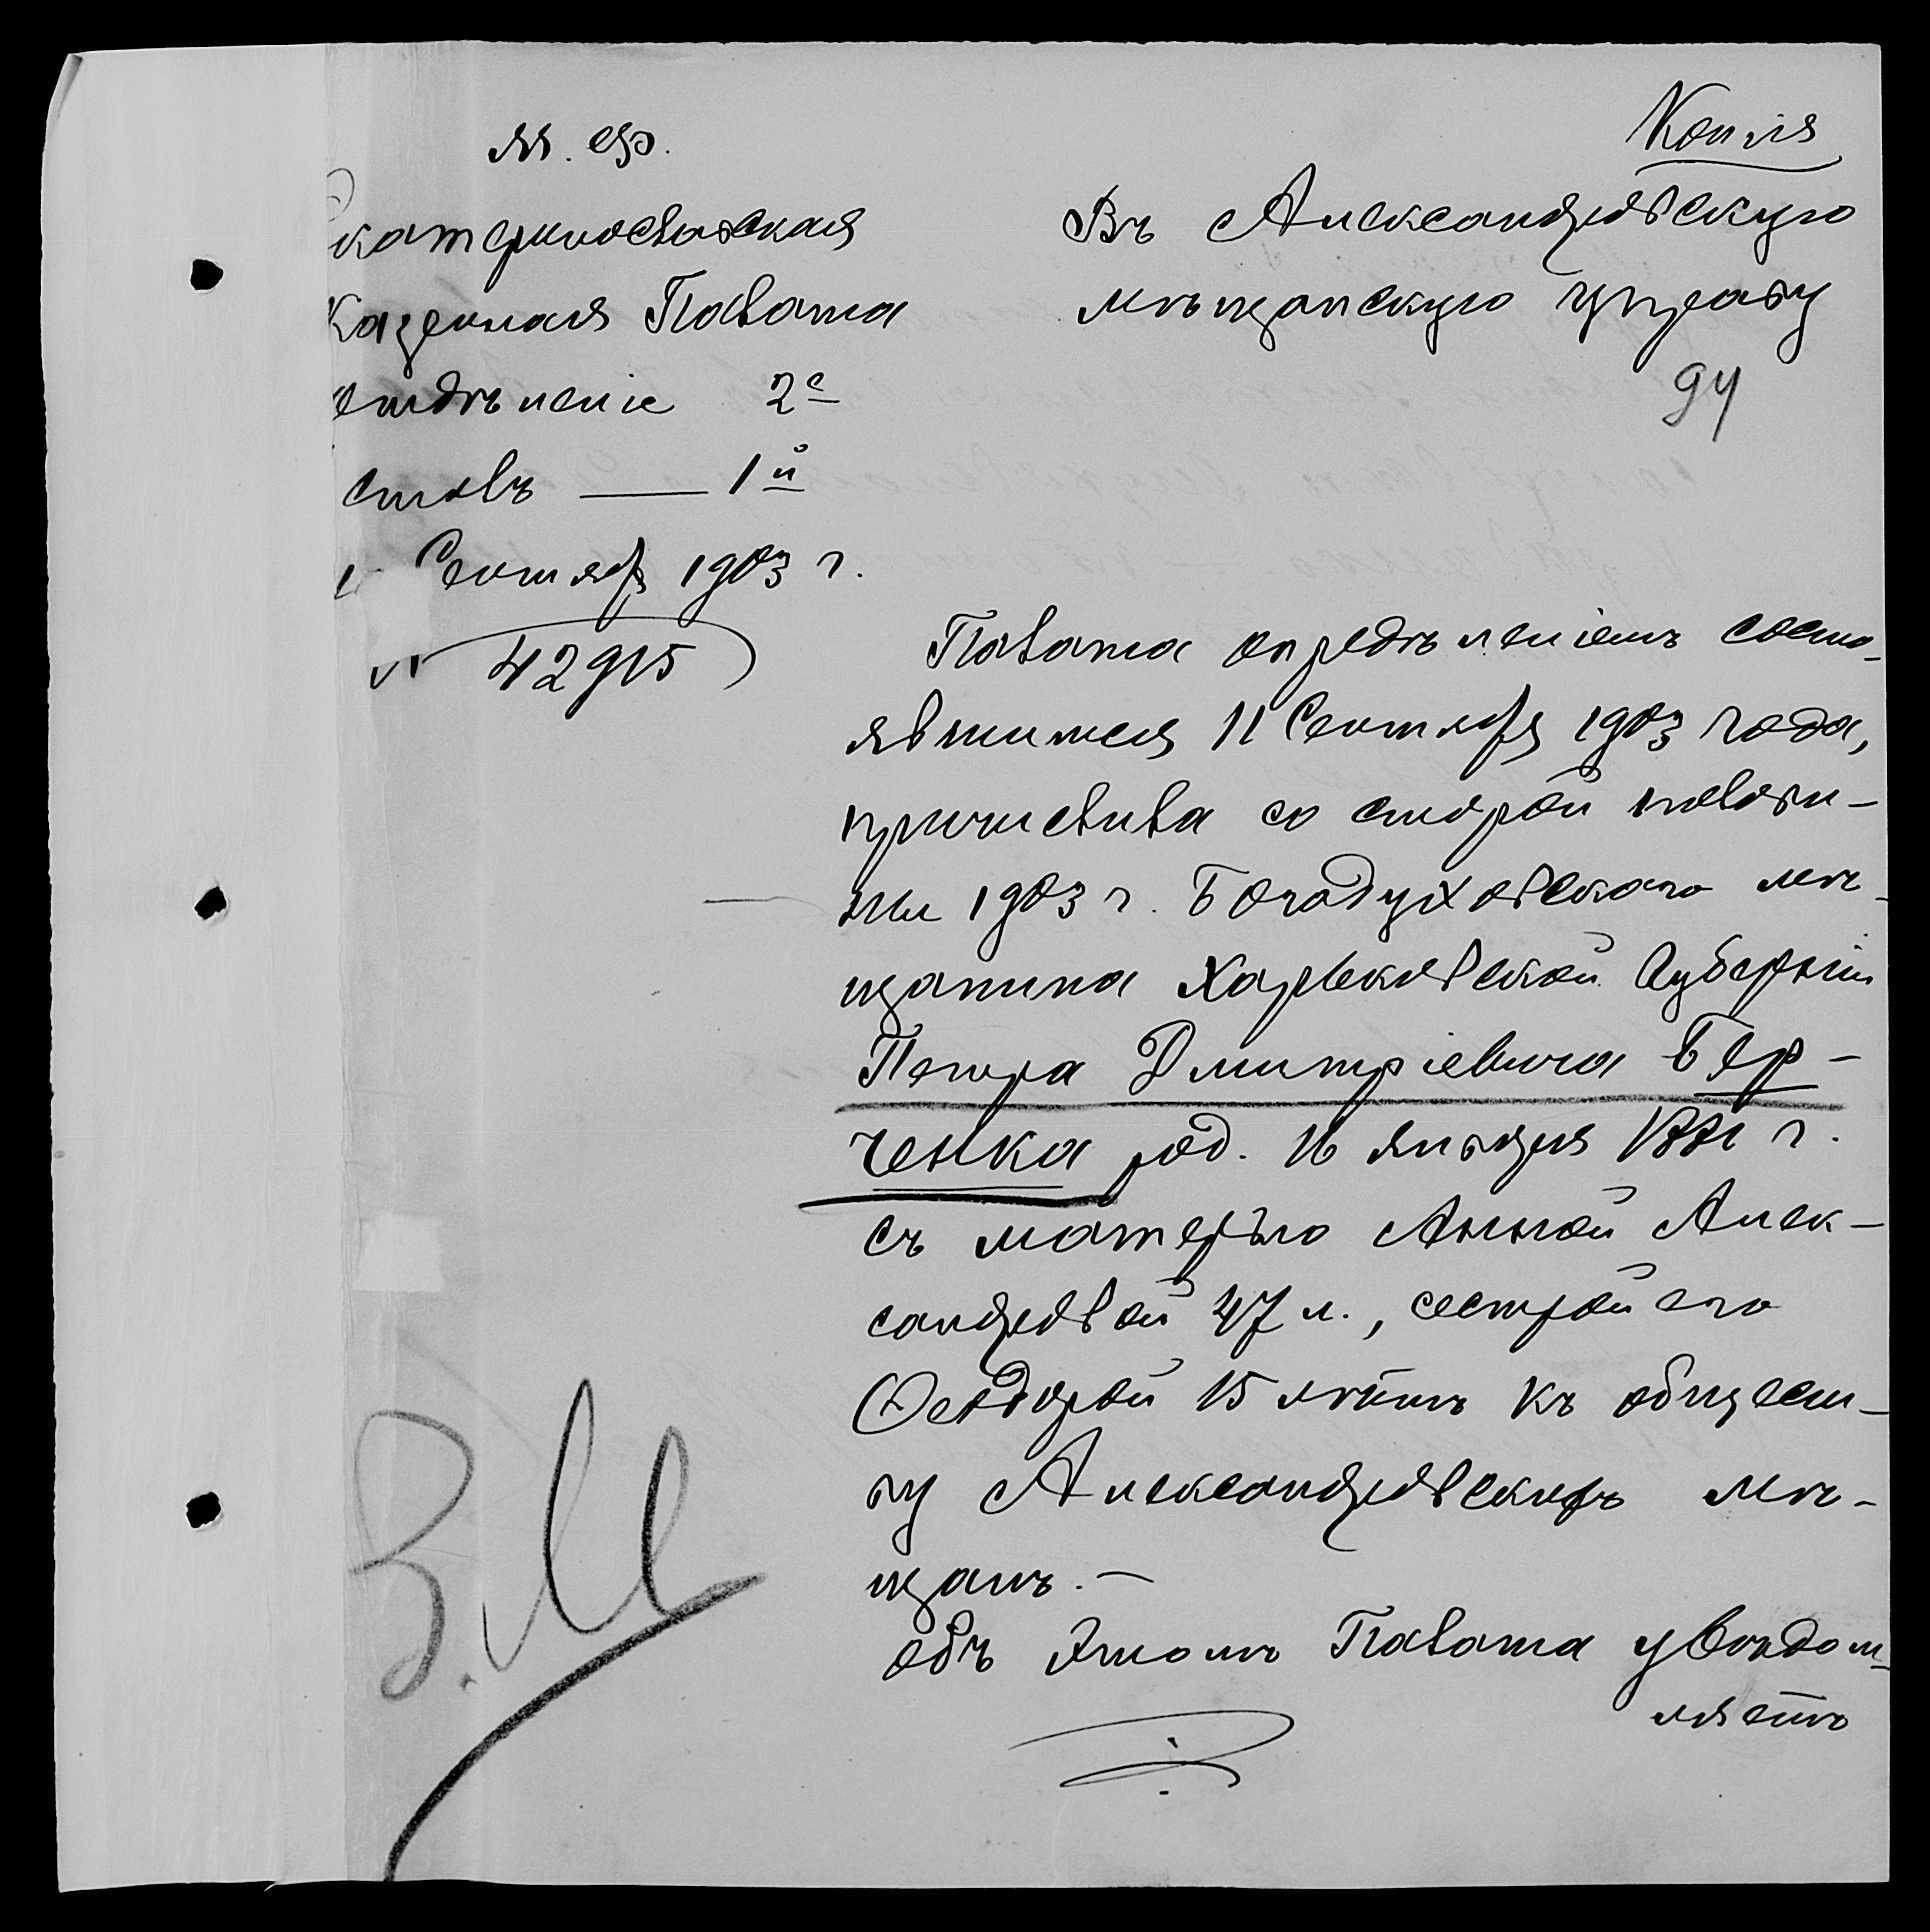 Копія
М. Ф.
Екатеринославская
Казенная Палата
отдѣленіе 2е
столъ — 1й
Сентября 1903 г.
№ 42915
Въ Александровскую
мѣщанскую управу
94
Палата опредѣленіемъ состо-
явшимся 11 Сентября 1903 года,
причислила со второй полови-
ны 1903 г. Богодуховскаго мѣ-
щанина Харьковской Губерніи
Петра Дмитріевича Бер-
ченка род. 16 января 1881 г.
съ матерью Анной Алек-
сандровой 47 л., сестрой его
Ѳеодорой 15 лѣтъ къ общест-
ву Александровскихъ мѣ-
щанъ. —
объ этомъ Палата увѣдом-
ляетъ